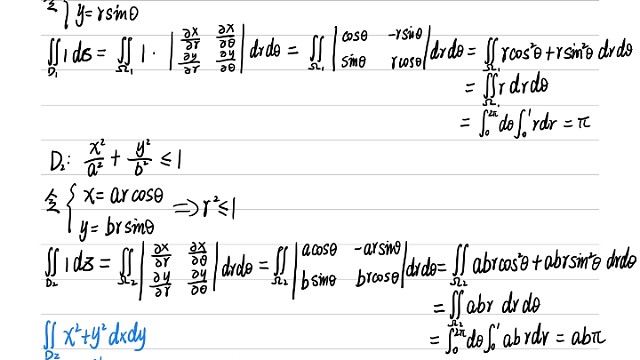 令 { y=rsinθ
∬_{D₁} 1 dσ = ∬_{Ω₁} 1 · | ∂x/∂r ∂x/∂θ ; ∂y/∂r ∂y/∂θ | drdθ = ∬_{Ω₁} | cosθ -rsinθ ; sinθ rcosθ | drdθ = ∬_{Ω₁} rcos²θ+rsin²θ drdθ
= ∬_{Ω₁} r drdθ
= ∫₀^{2π} dθ ∫₀¹ rdr = π
D₂: x²/a² + y²/b² ≤ 1
令 { x=arcosθ ; y=brsinθ ⇒ r² ≤ 1
∬_{D₂} 1 dσ = ∬_{Ω₂} | ∂x/∂r ∂x/∂θ ; ∂y/∂r ∂y/∂θ | drdθ = ∬_{Ω₂} | acosθ -arsinθ ; bsinθ brcosθ | drdθ = ∬_{Ω₂} abrcos²θ+abrsin²θ drdθ
= ∬_{Ω₂} abr drdθ
= ∫₀^{2π} dθ ∫₀¹ abrdr = abπ
∬_{D₂} x²+y² dxdy